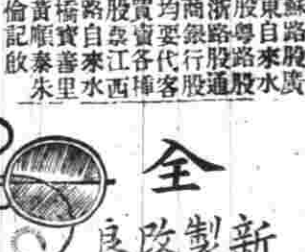 蘇路股廣
東自來水
股粵路股
浙路股通
商銀行股
均要代客
買賣各種
股票江西
路自來水
橋寶善里
黃順泰朱
倫記啟
全
新製改良